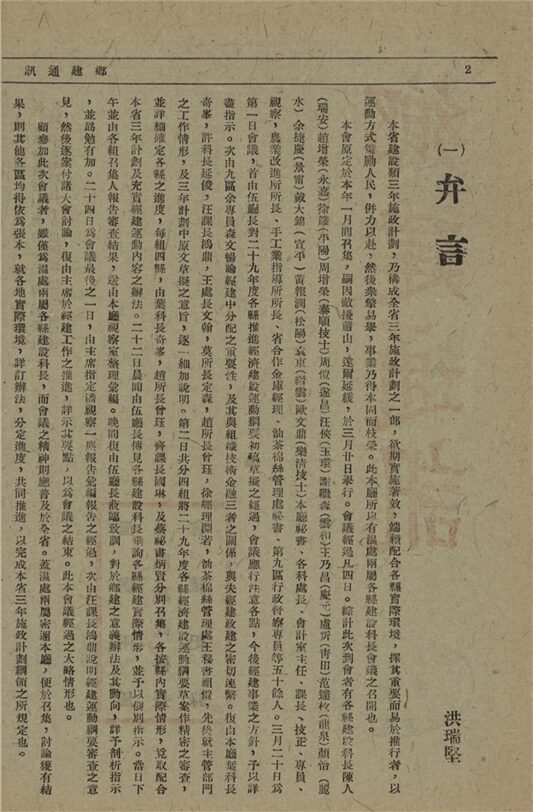 鄉建通訊
2
（一）弁言
洪瑞堅
本省建設類三年施政計劃，乃構成全省三年施政計劃之一部，欲期實施著效，端賴配合各縣實際環境，擇其重要而易於推行者，以
運動方式策勵人民，併力以赴，然後衆擎易舉，事業乃得本固而枝榮。此本廳所以有溫處兩屬各縣建設科長會議之召開也。
本會原定於本年一月間召集，嗣因敵擾蕭山，遂爾延緩，於三月廿日舉行。會議經過凡四日。綜計此次到會者有各縣建設科長陳人
（瑞安）趙增榮（永嘉）徐箴（平陽）周增榮（泰順技士）周愷（遂昌）汪俠（玉環）謝繼森（雲和）王乃昌（慶元）盧忻（靑田）范達枚（龍泉）顏怡（麗
水）余建慶（景甯）戴大錦（宣平）黃報潤（松陽）袁東（縉雲）歐文鼎（樂淸技士）本廳秘書、各科處長、會計室主任、課長、技正、專員、
視察，農業改進所所長、手工業指導所所長、省合作金庫經理、油茶棉絲管理處秘書、第九區行政督察專員等五十餘人。三月二十日爲
第一日會議，首由伍廳長對二十九年度各縣推進經濟建設運動綱要初稿草擬之經過，會議應行注意各點，今後經建事業之方針，予以詳
盡指示。次由九區余專員森文暢論經建中分配之重要性，及其與組織技術金融三者之關係，與夫經建政建之密切連繫。復由本廳葉科長
奇峯，許科長延俊，汪課長鴻鼎，王處長文翰，莫所長定森，趙所長曾珏，徐經理淵若，油茶棉絲管理處王秘書祖愷，先後就主管部門
之工作情形，及三年計劃中原文草擬之意旨，逐一細加說明。第二日共分四組將二十九年度各縣經濟建設運動綱要草案作精密之審查，
並詳細確定各縣之進度，每組四縣，由葉科長奇峯，趙所長曾珏，齊課長國琳，及蔡秘書炳賢分別召集，各按縣內實際情形，覓取配合
本省三年計劃及充實經建運動內容之辦法。二十二日晨間由伍廳長傳見各縣建設科長垂詢各縣經建實際情形，並予以個別指示。當日下
午並由各組召集人報告審查結果，送由本廳視察室整理彙編。晚間復由伍廳長蒞臨致訓，對於鄉建之意義辦法及其動向，詳予剖析指示
，並爲勉有加。二十四日爲會議最後之一日，由主席指定潘視察一塵報告彙編報告之經過，次由汪課長鴻鼎說明經建運動綱要審查之意
見，然後逐案付諸大會討論，復由主席於經建工作之推進，詳示其要點，以爲會議之結束。此本會議經過之大略情形也。
顧參加此次會議者，雖僅爲溫處兩屬各縣建設科長，而會議之精神則應普及於全省。蓋溫處兩屬密邇本廳，便於召集，討論獲有結
果，則其他各區均得依爲張本，就各地實際環境，詳訂辦法，分定進度，共同推進，以完成本省三年施政計劃綱領之所規定也。